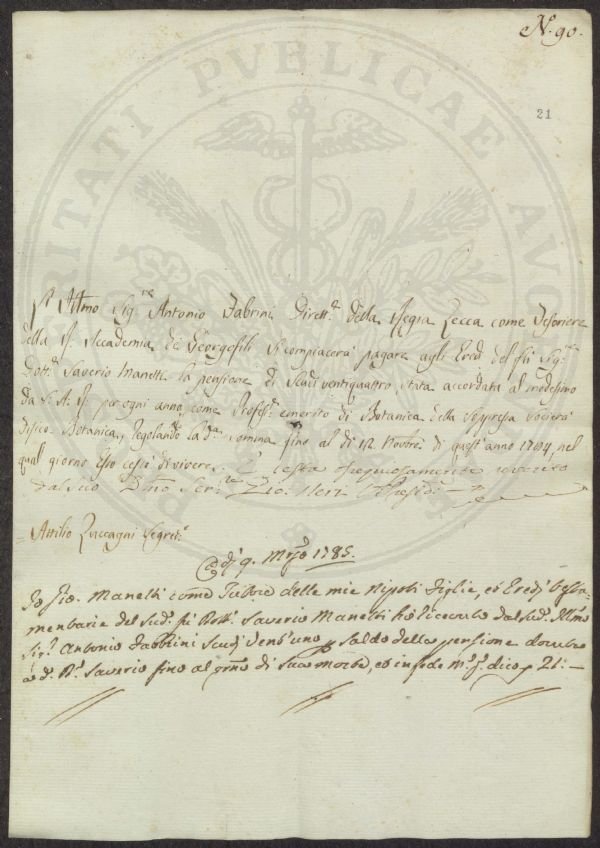 N.º 90.
21
PROSPERITATI PVBLICAE AVG
Illmo Sig.re Antonio Fabrini Dirett.e della Regia Zecca come Tesoriere
della R. Accademia dei Georgofili Si compiacerà pagare agli Eredi del fu Sig.re
Dott.e Saverio Manetti la pensione di Scudi ventiquattro, stata accordata al medesimo
da S. A. R. per ogni anno, come Profess.e emerito di Botanica della soppressa Società
Fisico-Botanica, regolando la d.a somma fino al dì 12. Novbre di quest'anno 1784, nel
qual giorno Esso cessò di vivere. E resta ossequiosamente
dal suo Dmo Ser.re Gio. Neri Presid.e
= Attilio Zuccagni Segret.o
Adj 9. Mrzo 1785.
Io Gio. Manetti come Tutore delle mie Nipoti Figlie, ed Eredj Testa-
mentarie del Sud.o fù Dott.e Saverio Manetti hò ricevuto dal sud.o Illmo
Sig.e Antonio Fabbrini Scudj Vent'uno p saldo della pensione dovuta
a d.o D.e Saverio fino al grno di Sua morte, ed in fede m.o p.a dico p 21:—